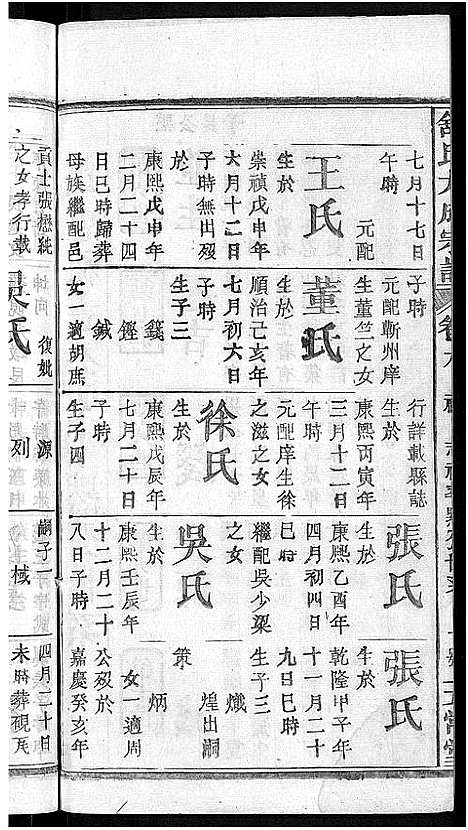 舒氏大成宗譜
卷九
七月十七日
午時
元配
王氏
生於
崇禎戊申年
六月十二日
子時無出歿
於
康熙戊申年
二月二十四
日巳時歸葬
母族繼配邑
子時
元配蘄州庠
生董竺之女
董氏
生於
順治己亥年
七月初六日
子時
生子三
籛
鏗
鍼
女一適胡庶
行詳載縣誌
生於
康熙丙寅年
三月十二日
午時
元配庠生徐
之滋之女
徐氏
生於
康熙戊辰年
七月二十日
子時
生子四
張氏
生於
康熙乙酉年
四月初四日
巳時
繼配吳少梁
之女
吳氏
生於
康熙壬辰年
十二月二十
八日子時
張氏
生於
乾隆甲子年
十一月二十
九日巳時
生子三
熾
煌出嗣
策
炳
女一適周
公歿於
嘉慶癸亥年
貢士張懋純
之女孝行載
復妣
吳氏
源
列
嗣子
棫
四月二十日
未時葬視